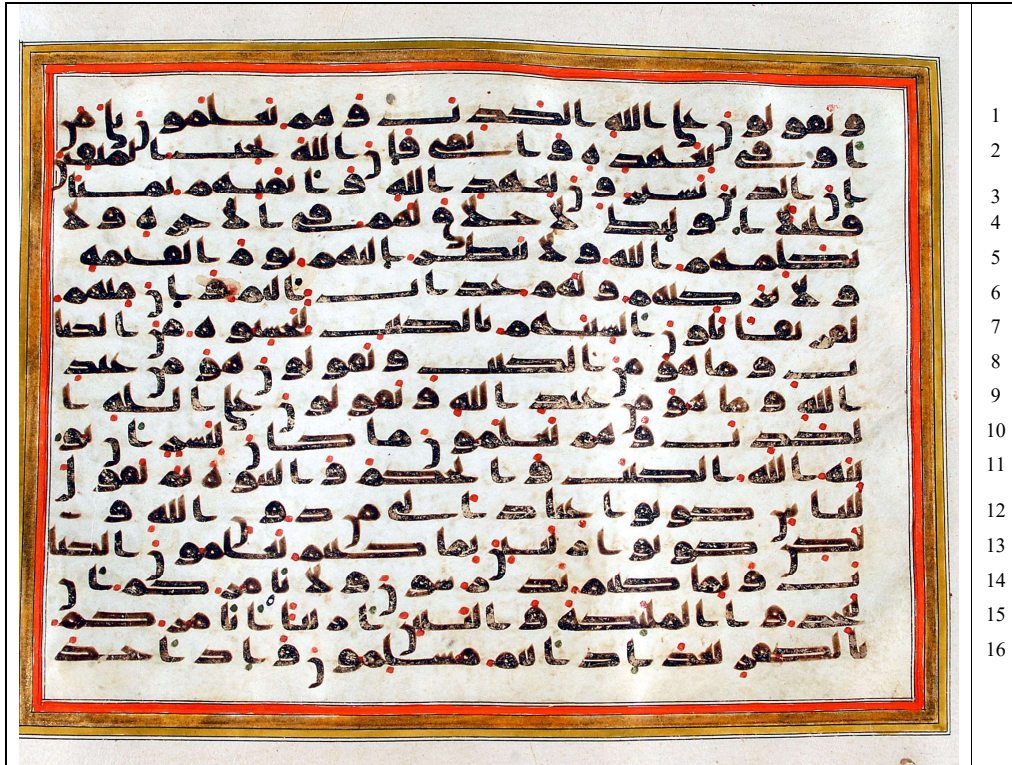 1 ويقولون على الله الكذب وهم يعلمون بلى من
2 اوفى بعهده واتقى فان الله يحب المتقين
3 ان الذين يشترون بعهد الله وايمنهم ثمنا
4 قليلا اوليك لا خلق لهم في الاخرة ولا
5 يكلمهم الله ولا ينظر اليهم يوم القيمة
6 ولا يزكيهم ولهم عذاب اليم وان منهم
7 لفريقا يلون السنتهم بالكتب لتحسبوه من الكتـ
8 ـب وما هو من الكتب ويقولون هو من عند
9 الله وما هو من عند الله ويقولون على الله ا
10 لكذب وهم يعلمون ما كان لبشر ان يو
11 تيه الله الكتب والحكم والنبوة ثم يقول
12 للناس كونوا عبادا لي من دون الله و
13 لكن كونوا ربنين بما كنتم تعلمون الكتـ
14 ـب وبما كنتم تدرسون ولا يامركم ان
15 تتخذوا الملئكة والنبين اربابا ايامركم
16 بالكفر بعد اذ انتم مسلمون واذ اخذ